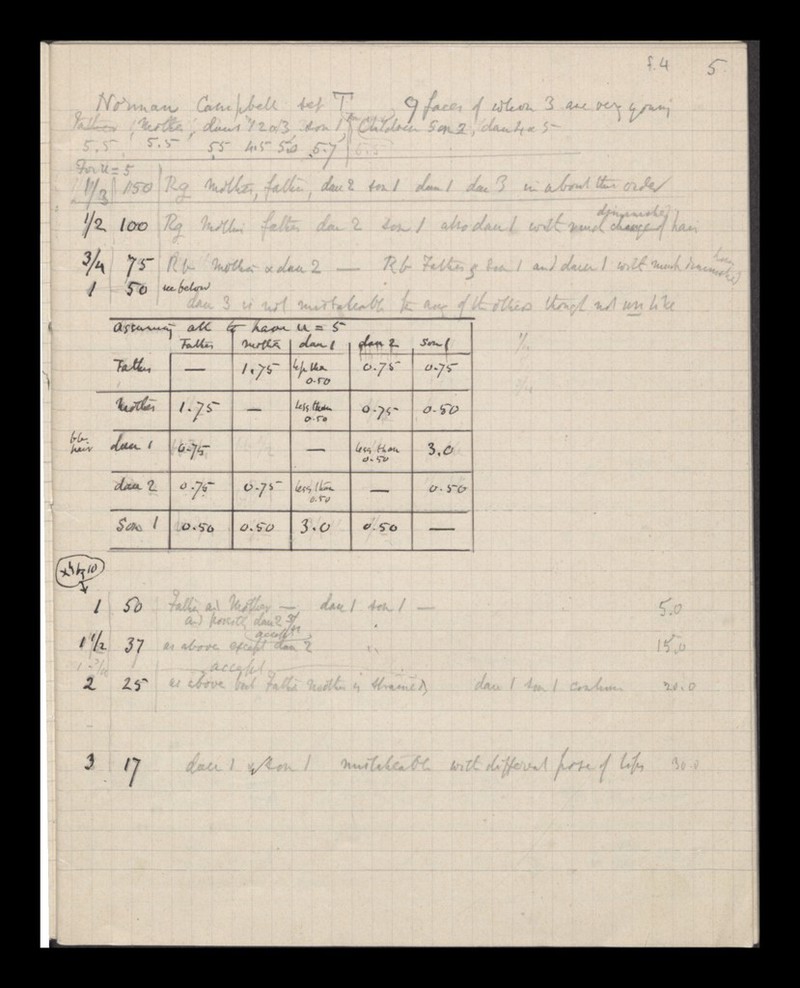 f.4 5
Norman Campbell set T 9 faces of whom 3 are very young
Father, Mother, daurs 1 2 & 3, son 1 Children Son 2, daur 4 & 5
5.5 5.5 5.5 4.5 5.0 5.7 5.5
For u = 5
1/3 150 Rg Mother, father, dau 2 son 1 dau 1 dau 3 in about this order
diminished
1/2 100 Rg Mother father dau 2 son 1 also dau 1 with much changed hair
3/4 75 Rb Mother & dau 2 — Rb Father & son 1 and daur 1 with much diminished hair
1 50 see below
daur 3 is not mistakeable for any of the others though not unlike
Assuming all to have u = 5
Father mother dau 1 dau 2 son 1
Father — 1.75 less than 0.50 0.75 0.75
Mother 1.75 — less than 0.50 0.75 0.50
hair dau 1 0.75 — less than 0.50 3.0
dau 2 0.75 0.75 less than 0.50 — 0.50
Son 1 0.50 0.50 3.0 0.50 —
x by 10
1 50 Father and Mother — dau 1 son 1 — 5.0
and possibly dau 2
accept
1 1/2 37 as above except dau 2 " 15.0
accept
2 25 as above but Father Mother is strained, dau 1 son 1 continue 20.0
3 17 daur 1 & son 1 mistakeable with different pose of lips 30.0